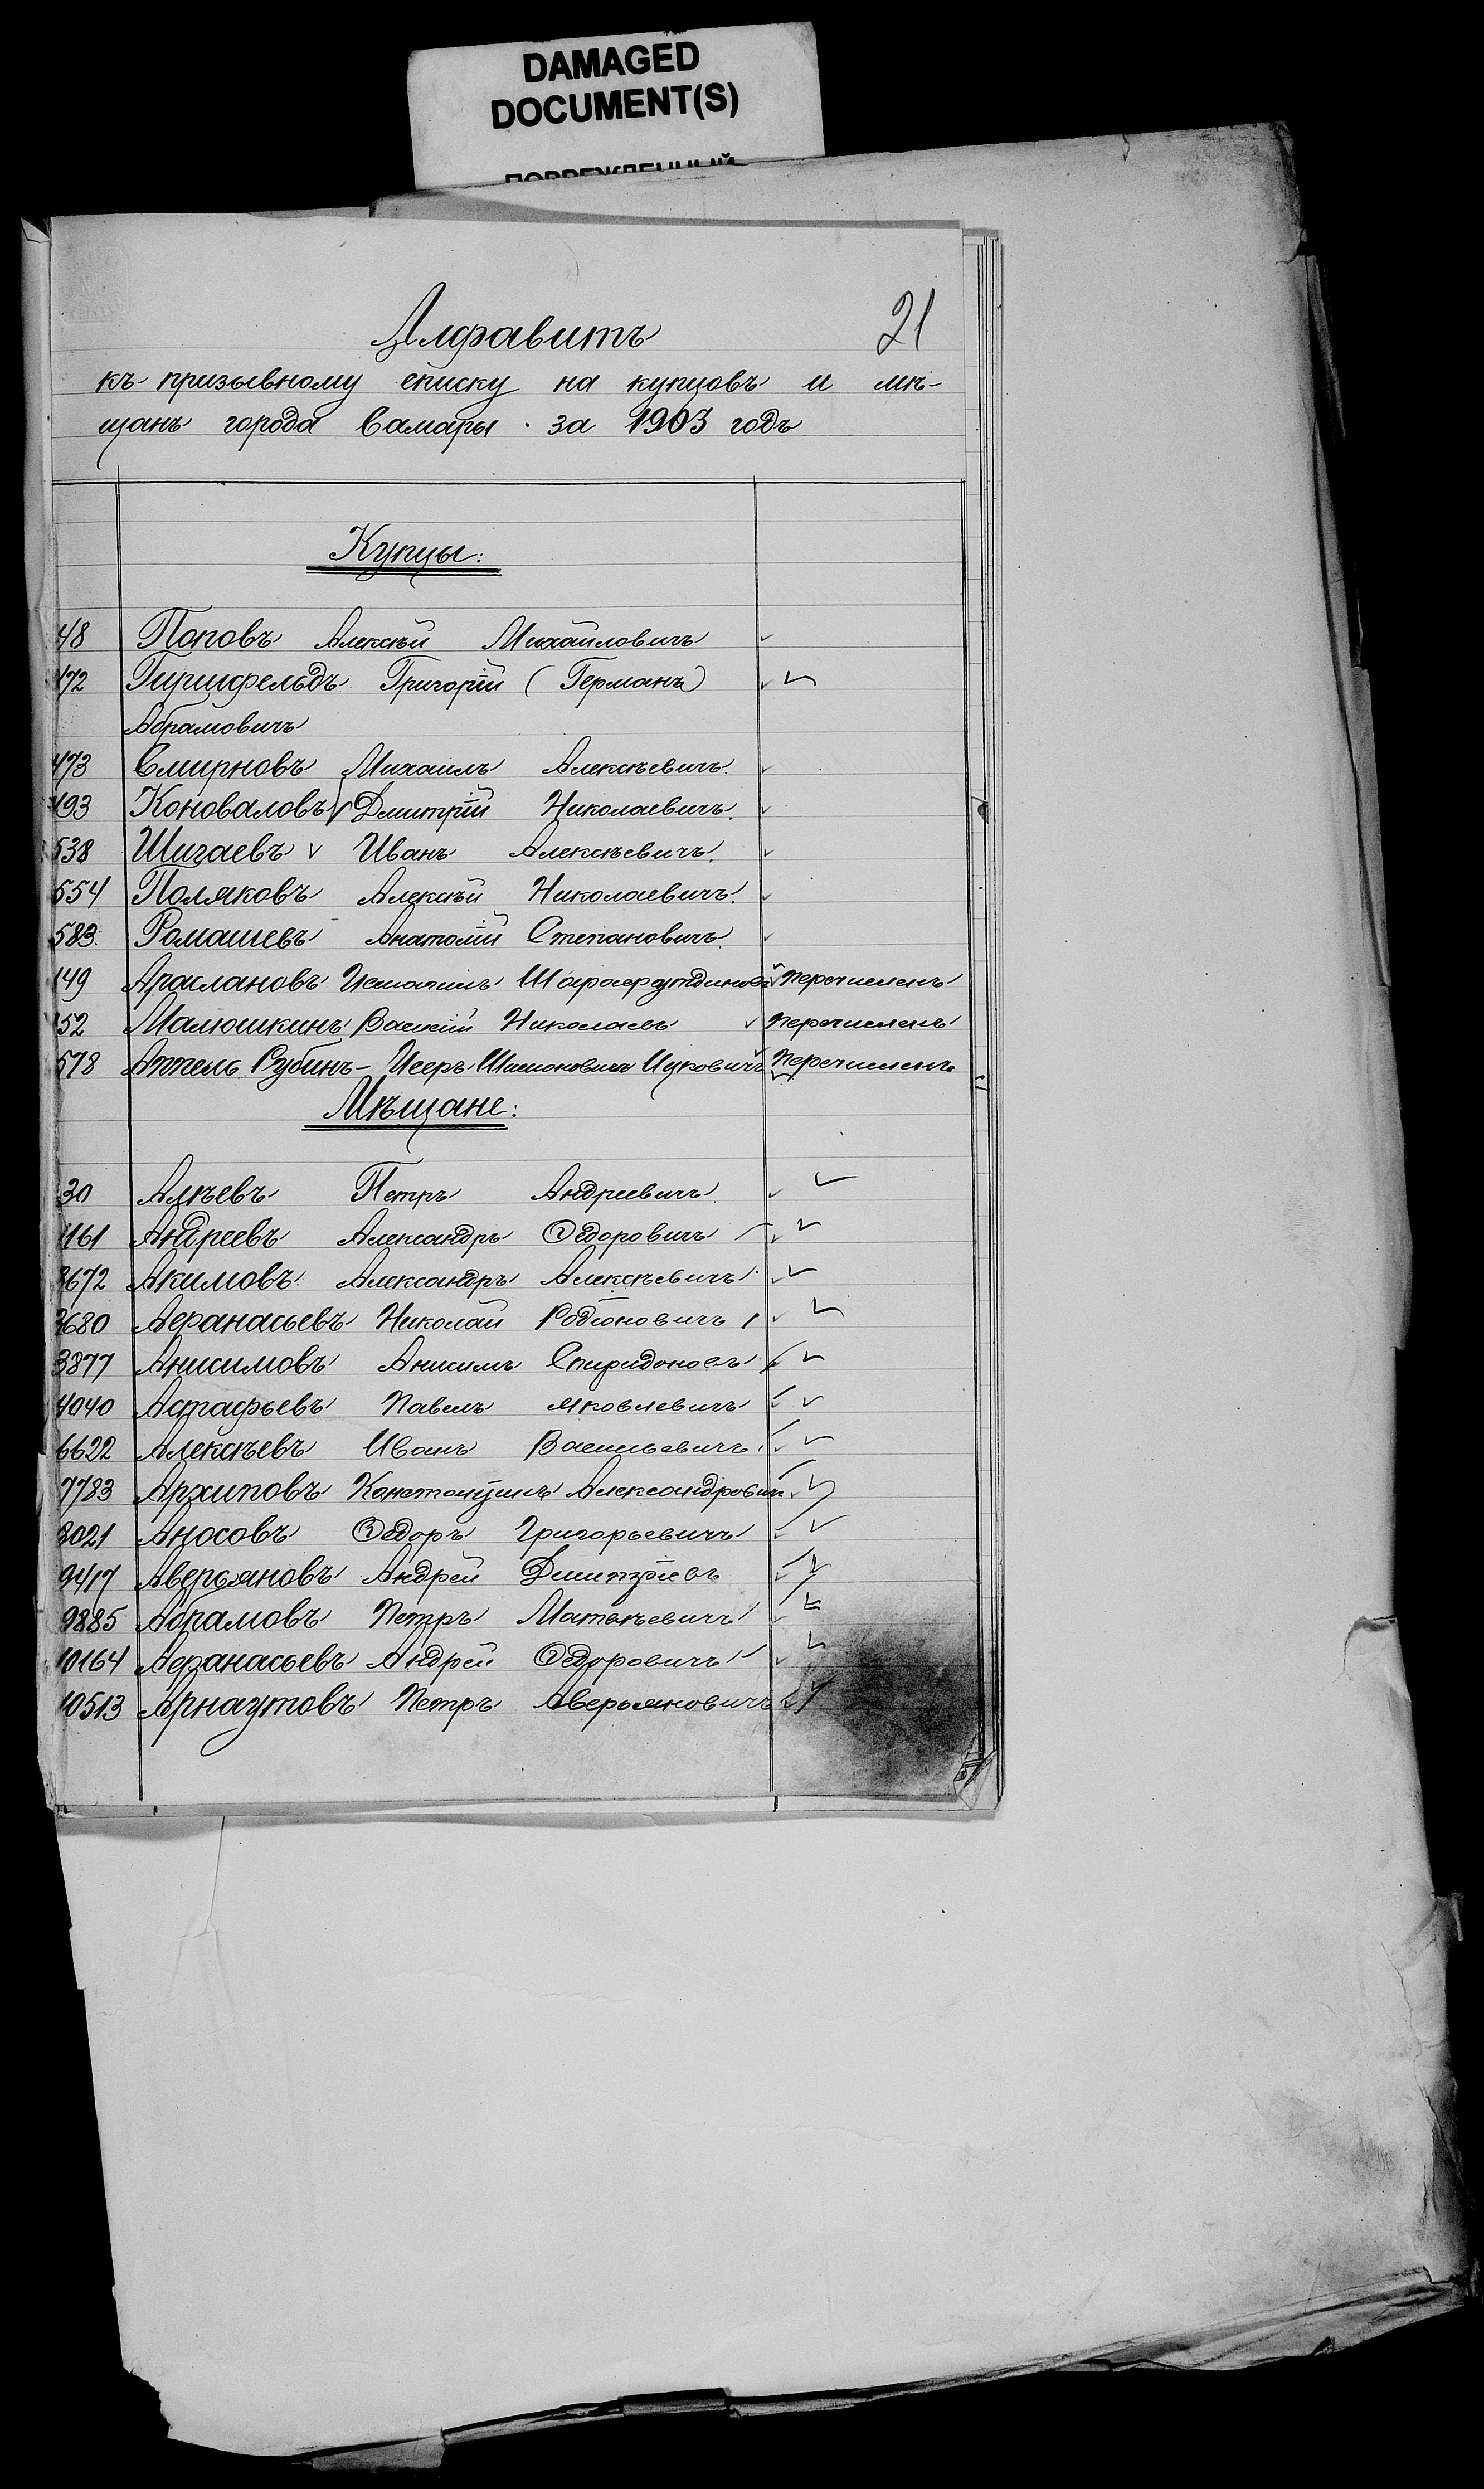 DAMAGED
DOCUMENT(S)
ПОВРЕЖДЕННЫЙ
21
Алфавитъ
къ призывному списку на купцовъ и мѣ-
щанъ города Самары за 1903 годъ
Купцы:
48 Поповъ Алексѣй Михайловичъ
472 Гиршфельдъ Григорій (Германъ)
Абрамовичъ
473 Смирновъ Михаилъ Алексѣевичъ.
493 Коноваловъ Дмитрій Николаевичъ.
538 Шигаевъ Иванъ Алексѣевичъ.
554 Поляковъ Алексѣй Николаевичъ.
583. Ромашевъ Анатолій Степановичъ.
149 Араслановъ Исмагилъ перечисленъ
152 Малюшкинъ Василій Николаевъ перечисленъ
578 Аппель Рубинъ- Исеръ Шимоновичъ Ицковичъ перечисленъ
Мѣщане:
30 Алѣевъ Петръ Андреевичъ.
1161 Андреевъ Александръ Ѳедоровичъ
3672 Акимовъ Александръ Алексѣевичъ
3680 Аѳанасьевъ Николай Родіоновичъ
3877 Анисимовъ Анисимъ Спиридоновъ
4040 Астафьевъ Павелъ Яковлевичъ
6622 Алексѣевъ Иванъ Васильевичъ
7783 Архиповъ Константинъ Александровичъ
8021 Аносовъ Ѳедоръ Григорьевичъ
9417 Аверьяновъ Андрей Дмитріевъ
9885 Абрамовъ Петръ Матвѣевичъ
10164 Аѳанасьевъ Андрей Ѳедоровичъ
10513 Арнаутовъ Петръ Аверьяновичъ